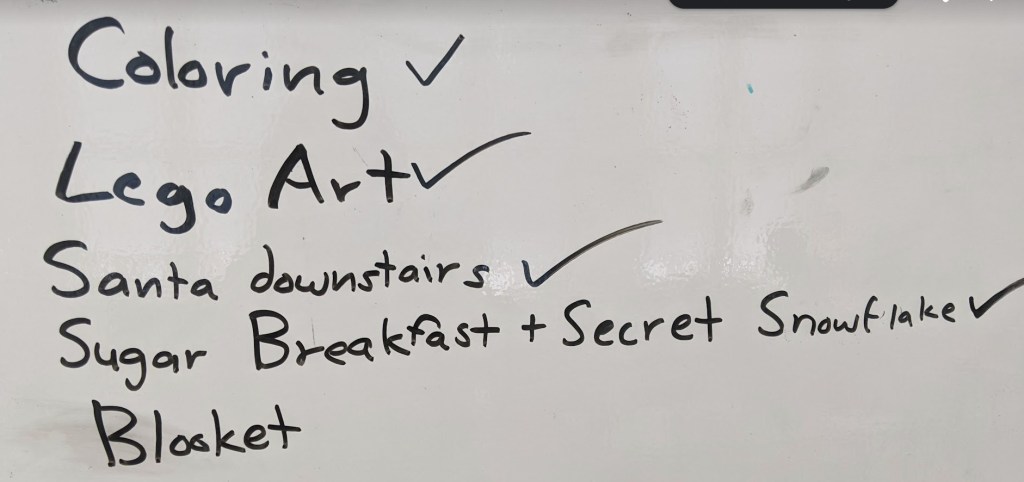 Coloring ✓
Lego Art ✓
Santa downstairs ✓
Sugar Breakfast + Secret Snowflake ✓
Blooket